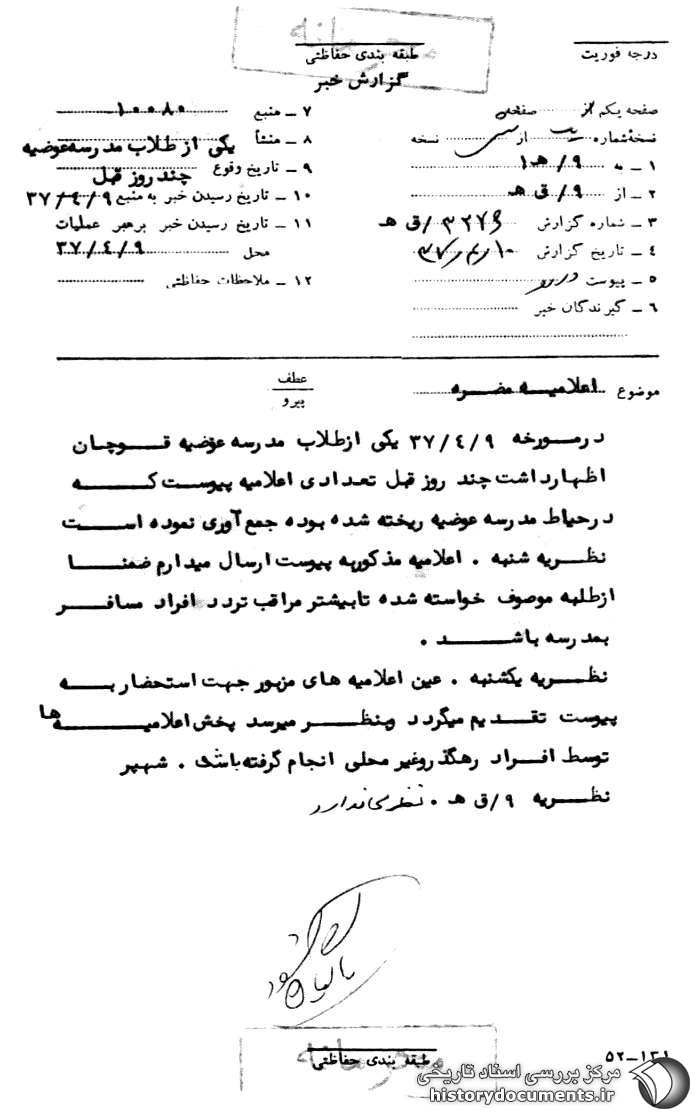 محرمانه
درجه فوریت
طبقه بندی حفاظتی
گزارش خبر
صفحه یکم از صفحه
نسخه شماره یک از سی نسخه
۱ ـ به ۹/ هـ ۱
۲ ـ از ۹/ ق هـ
۳ ـ شماره گزارش ۳۲۷۶/ق هـ
۴ ـ تاریخ گزارش ۳۷/۴/۱۰
۵ ـ پیوست دارد
۶ ـ گیرندگان خبر
۷ ـ منبع ۱۰۰۸۰
۸ ـ منشأ یکی از طلاب مدرسه عوضیه
۹ ـ تاریخ وقوع چند روز قبل
۱۰ ـ تاریخ رسیدن خبر به منبع ۳۷/۴/۹
۱۱ ـ تاریخ رسیدن خبر برهبر عملیات
محل ۳۷/۴/۹
۱۲ ـ ملاحظات حفاظتی
موضوع اعلامیه مضره
عطف
پیرو
در مورخه ۳۷/۴/۹ یکی از طلاب مدرسه عوضیه قوچان
اظهار داشت چند روز قبل تعدادی اعلامیه پیوست که
در حیاط مدرسه عوضیه ریخته شده بوده جمع آوری نموده است
نظریه شنبه . اعلامیه مذکور به پیوست ارسال میدارم ضمنا
از طلبه موصوف خواسته شده تا بیشتر مراقب تردد افراد مسافر
بمدرسه باشد .
نظریه یکشنبه . عین اعلامیه های مزبور جهت استحضار به
پیوست تقدیم میگردد و بنظر میرسد پخش اعلامیه ها
توسط افراد رهگذر و غیر محلی انجام گرفته باشد . شهپر
نظریه ۹/ق هـ . نظری ندارد
طبقه بندی حفاظتی
محرمانه
۵۲ـ۱۳۱
مرکز بررسی اسناد تاریخی
historydocuments.ir